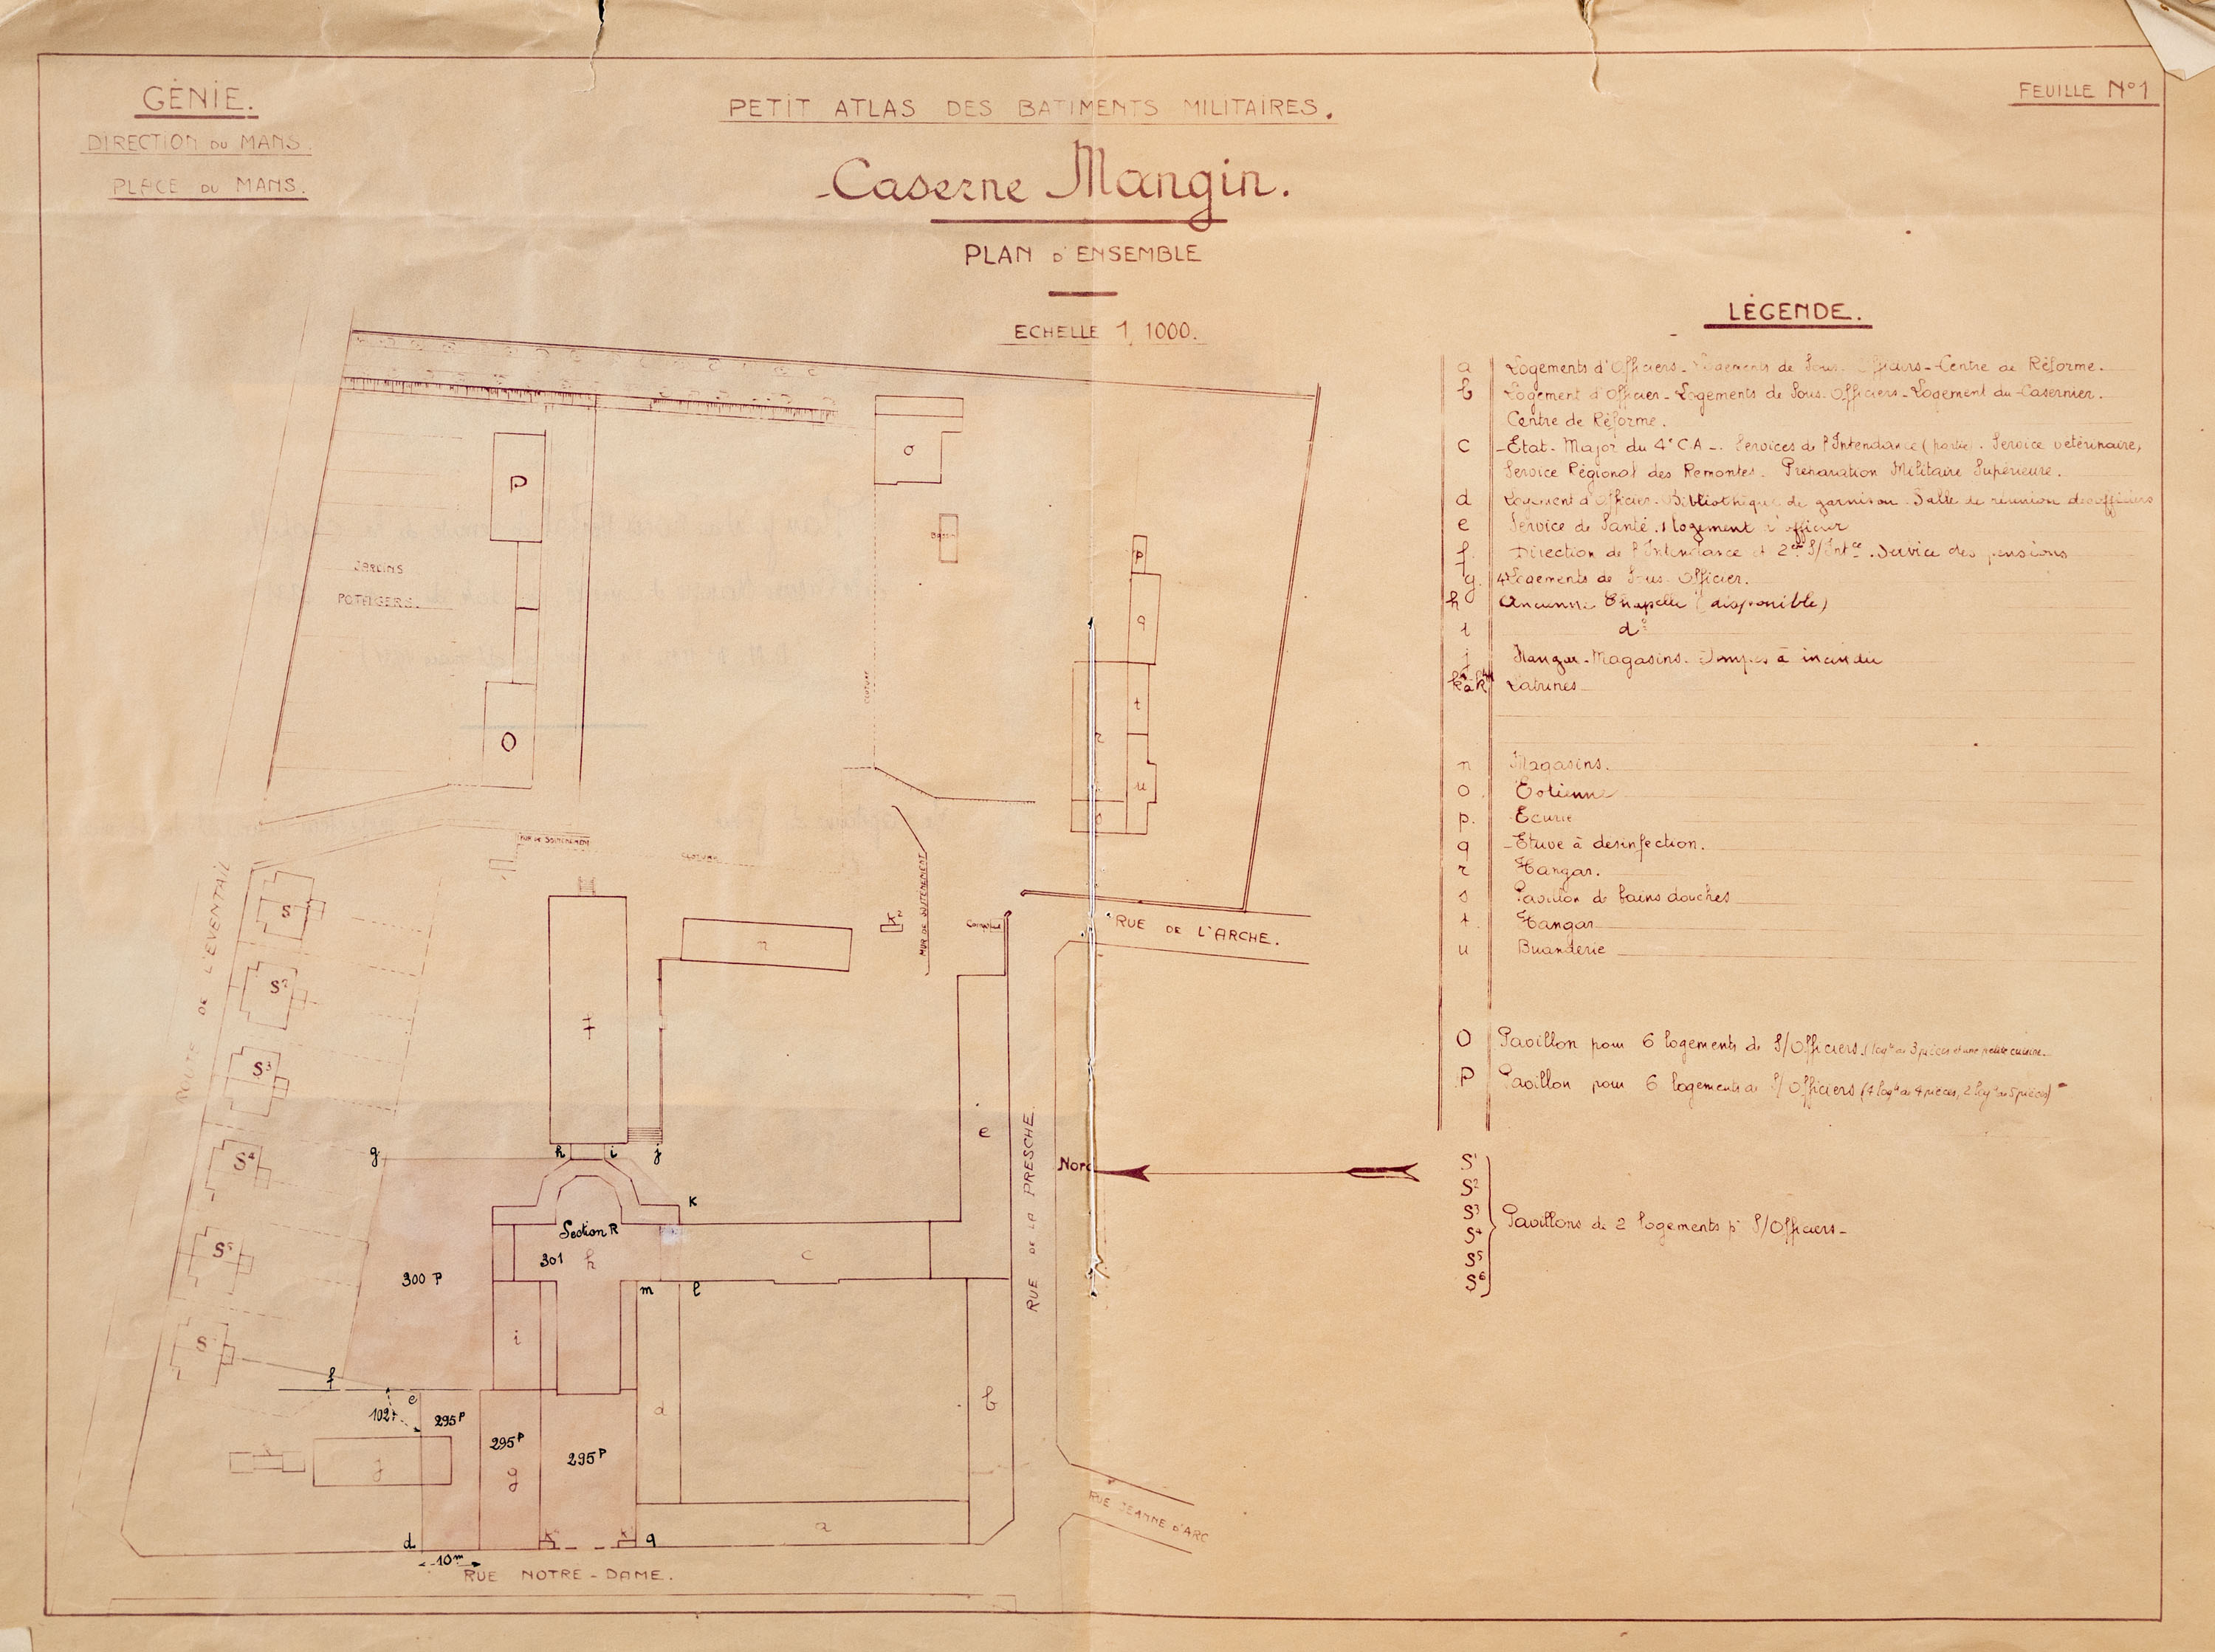 GÉNIE.
DIRECTION DU MANS.
PLACE DU MANS.
PETIT ATLAS DES BATIMENTS MILITAIRES.
Caserne Mangin.
PLAN D'ENSEMBLE
ECHELLE 1, 1000.
FEUILLE N°1
LÉGENDE.
a Logements d'Officiers - Logements de Sous-Officiers - Centre de Réforme.
b Logement d'Officier - Logements de Sous-Officiers - Logement du Casernier.
Centre de Réforme.
c Etat-Major du 4e C.A - Services de l'Intendance (partie). Service vétérinaire,
Service Régional des Remontes. Préparation Militaire Supérieure.
d Logement d'Officier - Bibliothèque de garnison - Salle de réunion des officiers
e Service de Santé. 1 logement d'officier
f Direction de l'Intendance et 2e S/Intce. Service des pensions
g. 4 Logements de Sous-Officier.
h Ancienne Chapelle (disponible)
i d°
j Hangar - Magasins. Pompes à incendie
k à k4 Latrines
n Magasins.
o
p. Ecurie
q Etuve à désinfection.
r Hangar.
s Pavillon de bains douches
t. Hangar
u Buanderie
O Pavillon pour 6 logements de S/Officiers. (logts de 3 pièces et une petite cuisine.
P Pavillon pour 6 logements de S/Officiers (4 logts de 4 pièces, 2 logts de 5 pièces)
S1
S2
S3
S4
S5
S6
Pavillons de 2 logements pr S/Officiers -
P
o
Bassin
p
JARDINS
POTAGERS.
q
CLOTURE
t
r
O
u
s
MUR DE SOUTENEMENT
CLOTURE
MUR DE SOUTENEMENT
ROUTE DE L'EVENTAIL
S
n
RUE DE L'ARCHE.
S2
f
S3
e
RUE DE LA PRESCHE.
Nord
S4
g
h
i
j
k
Section R
301
h
c
S5
300 P
m
l
S
i
f
e
102
295P
295P
295P
d
b
j
g
a
d
q
10m
RUE NOTRE-DAME.
RUE JEANNE D'ARC